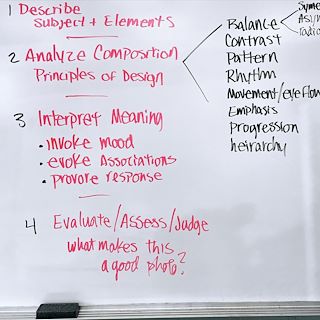 1 Describe
Subject + Elements
2 Analyze Composition
Principles of Design
Balance
Contrast
Pattern
Rhythm
Movement/eye flow
Emphasis
Progression
heirarchy
3 Interpret Meaning
• invoke mood
• evoke Associations
• provore response
4 Evaluate/Assess/Judge
what makes this
a good photo?